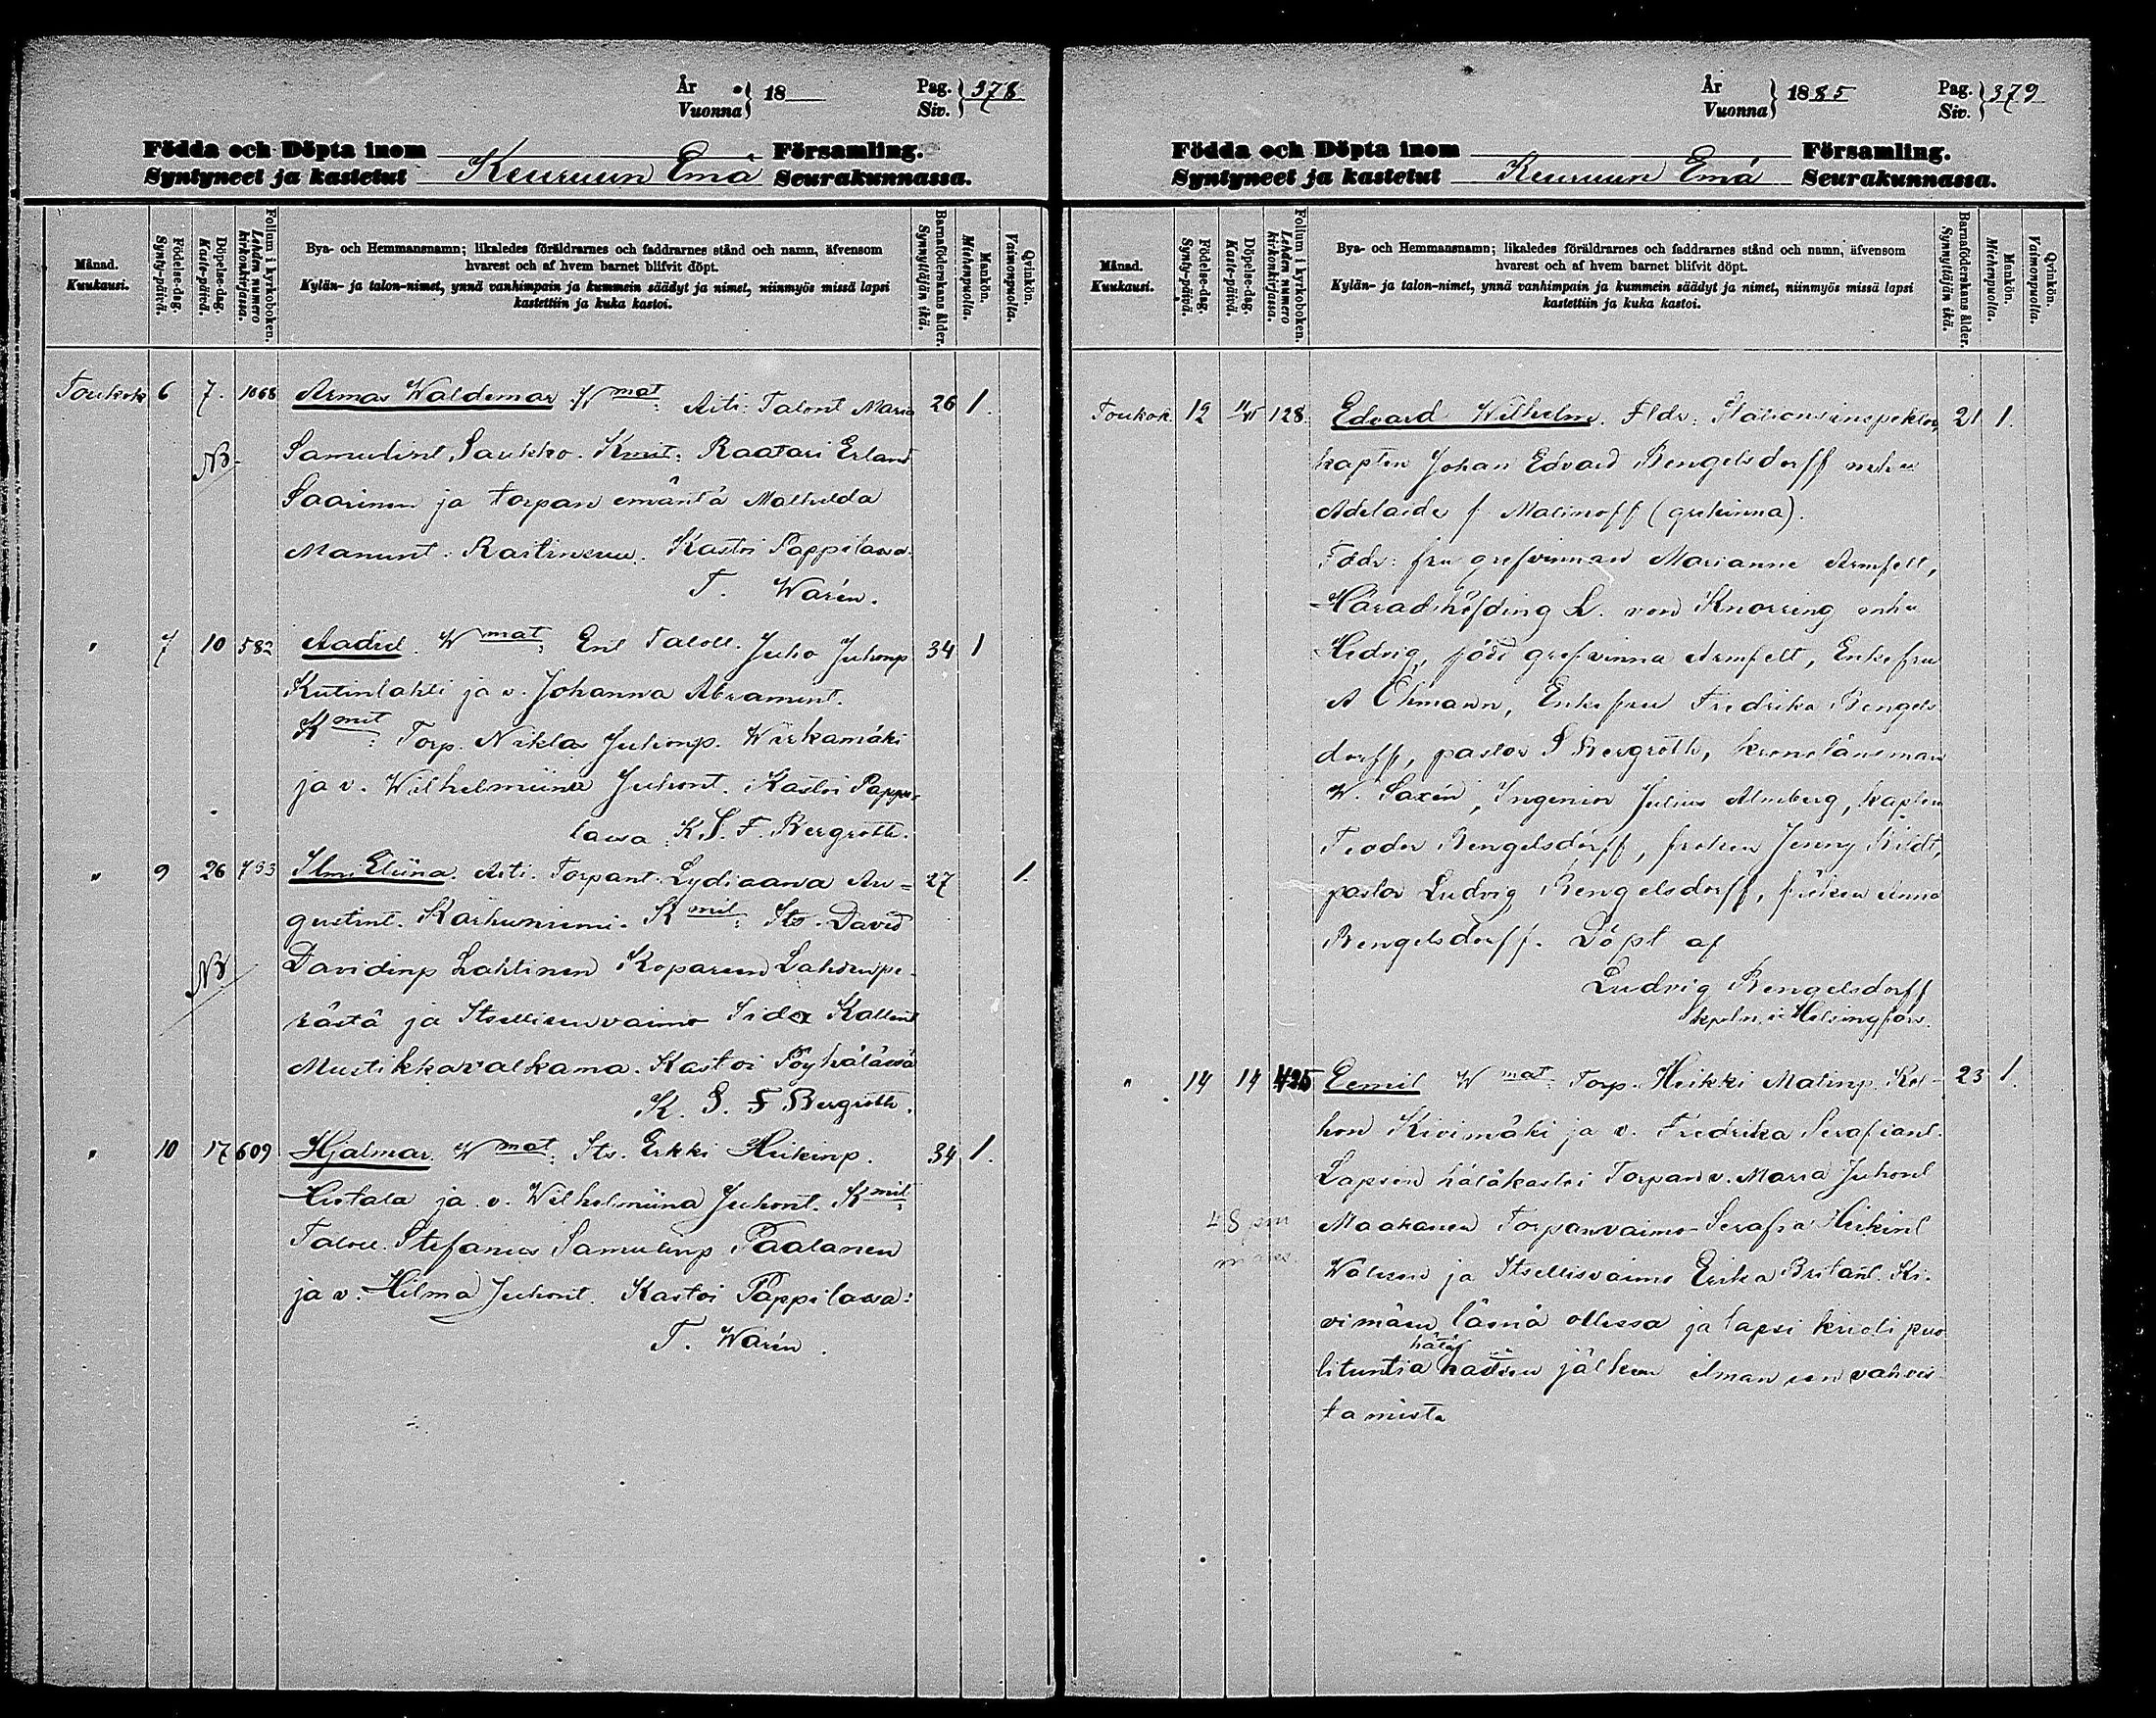 År Vuonna } 18 Pag. Siv. } 378
Födda och Döpta inom Församling.
Syntyneet ja kastetut Keuruun Emä Seurakunnassa.
Månad. Kuukausi.
Födelse-dag. Synty-päivä.
Döpelse-dag. Kaste-päivä.
Folium i kyrkoboken. Lehden numero kirkonkirjassa.
Bya- och Hemmansnamn; likaledes föräldrarnes och faddrarnes stånd och namn, äfvensom
hvarest och af hvem barnet blifvit döpt.
Kylän- ja talon-nimet, ynnä vanhimpain ja kummein säädyt ja nimet, niinmyös missä lapsi
kastettiin ja kuka kastoi.
Barnaföderskans ålder. Synnyttäjän ikä.
Mankön. Miehenpuolla.
Qvinkön. Vaimonpuolla.
Toukok 6 7. 1068 Armas Waldemar. Wmat: Äiti: Talont Maria 26 1.
NB. Samulint. Saukko. Kmit: Raatari Erland
Saarinen ja torpan emäntä Mathilda
Manunt. Kastoi Pappilassa
T. Warén.
" 7 10 582 Aadiel. Wmat: Ent Taloll. Juho Juhonp 34 1
Kutinlahti ja v. Johanna Abrament.
Kmit: Torp. Niklas Juhonp. Wirkamäki
ja v. Wilhelmiina Juhont. Kastoi Pappi-
lassa K. S. F. Bergroth.
" 9 26 733 Ilmi Eliina. Äiti. Torpant. Lydiaanna Au= 27 1.
gustint. Karhuniemi. Kmit: Its. David
NB Davidinp Lahtinen Koparsen Lahdenpe-
rästä ja Itsellisenvaimo Iida Kallent
Mustikkavalkama. Kastoi Pöyhölässä
K. S. F Bergroth.
" 10 17 609 Hjalmar. Wmat: Its. Erkki Heikinp. 34 1.
ja v. Wilhelmiina Juhont. Kmit:
Taloll. Stefanus Samulinp Paalanen
ja v. Hilma Juhont. Kastoi Pappilassa:
T. Warén.
År Vuonna } 1885 Pag. Siv. } 379
Födda och Döpta inom Församling.
Syntyneet ja kastetut Keuruun Emä Seurakunnassa.
Månad. Kuukausi.
Födelse-dag. Synty-päivä.
Döpelse-dag. Kaste-päivä.
Folium i kyrkoboken. Lehden numero kirkonkirjassa.
Bya- och Hemmansnamn; likaledes föräldrarnes och faddrarnes stånd och namn, äfvensom
hvarest och af hvem barnet blifvit döpt.
Kylän- ja talon-nimet, ynnä vanhimpain ja kummein säädyt ja nimet, niinmyös missä lapsi
kastettiin ja kuka kastoi.
Barnaföderskans ålder. Synnyttäjän ikä.
Mankön. Miehenpuolla.
Qvinkön. Vaimonpuolla.
Toukok. 12 128. Edvard Wilhelm. Fldr: Stationsinspektor, 21 1.
kapten Johan Edvard Bengelsdorff
Adelaide f Malinoff (grekinna).
Fddr: fru grefvinnan Marianne Armfelt,
Häradshöfding L. von Knorring
Hedvig, född grefvinna Armfelt, Enkefru
A Öhmann, Enkefru Fredrika Bengels
dorff, pastor S Bergroth, kronolänsman
W. Saxén, Ingeniör Julius Almberg, kapten
Teodor Bengelsdorff, fröken Jenny
pastor Ludvig Bengelsdorff, fröken Anna
Bengelsdorff. Döpt af
Ludvig Bengelsdorff
kpln. i Helsingfors.
" 14 14 425 Eemil Wmat: Torp. Heikki Matinp. 23 1.
Kivimäki ja v. Fredrika Serafiant.
Lapsen hätäkastoi Torpanv. Maria Juhont
Maahanen Torpanvaimo Serafia Heikint
ja Itsellisvaimo Erika Britant. Ki-
vimäen läsnä ollessa ja lapsi kuoli puo
lituntia hätäkasteen jälkeen ilman sen vahvis
tamista